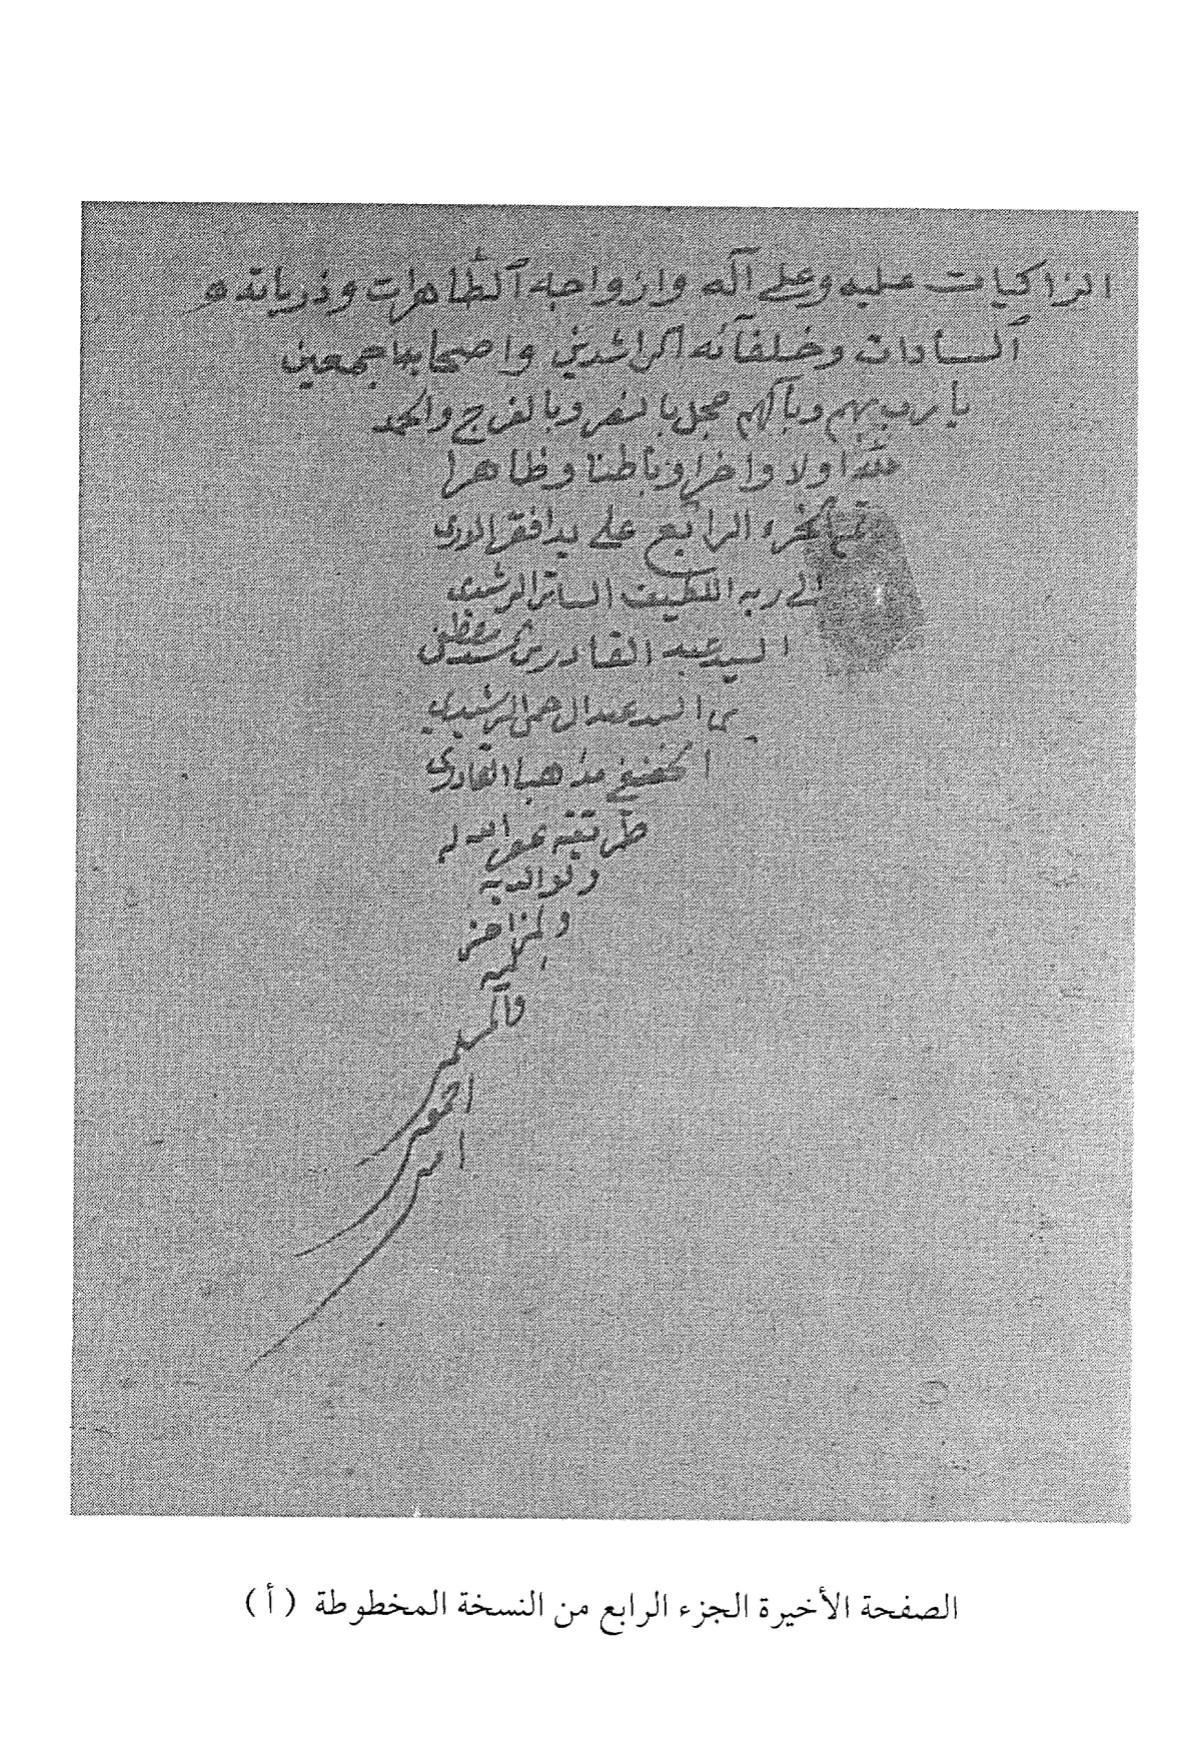 الزاكيات عليه وعلى آله وازواجه الطاهرات وذرياته
السادات وخلفآئه الراشدين واصحابه اجمعين
يارب بهم وبآلهم عجل بالنصر وبالفرج والحمد
لله اولا واخرا وباطنا وظاهرا
تم الجزء الرابع على يد افقر الورى
الى ربه اللطيف الساتر الرشيدى
السيد عبد القادر بن السيد مصطفى
بن السيد عبد الرحمن الرشيدي
الحنفي مذهبا القادرى
طريقة غفر الله له
ولوالديه
والمسلمين
اجمعين
امين
الصفحة الأخيرة الجزء الرابع من النسخة المخطوطة ( أ )